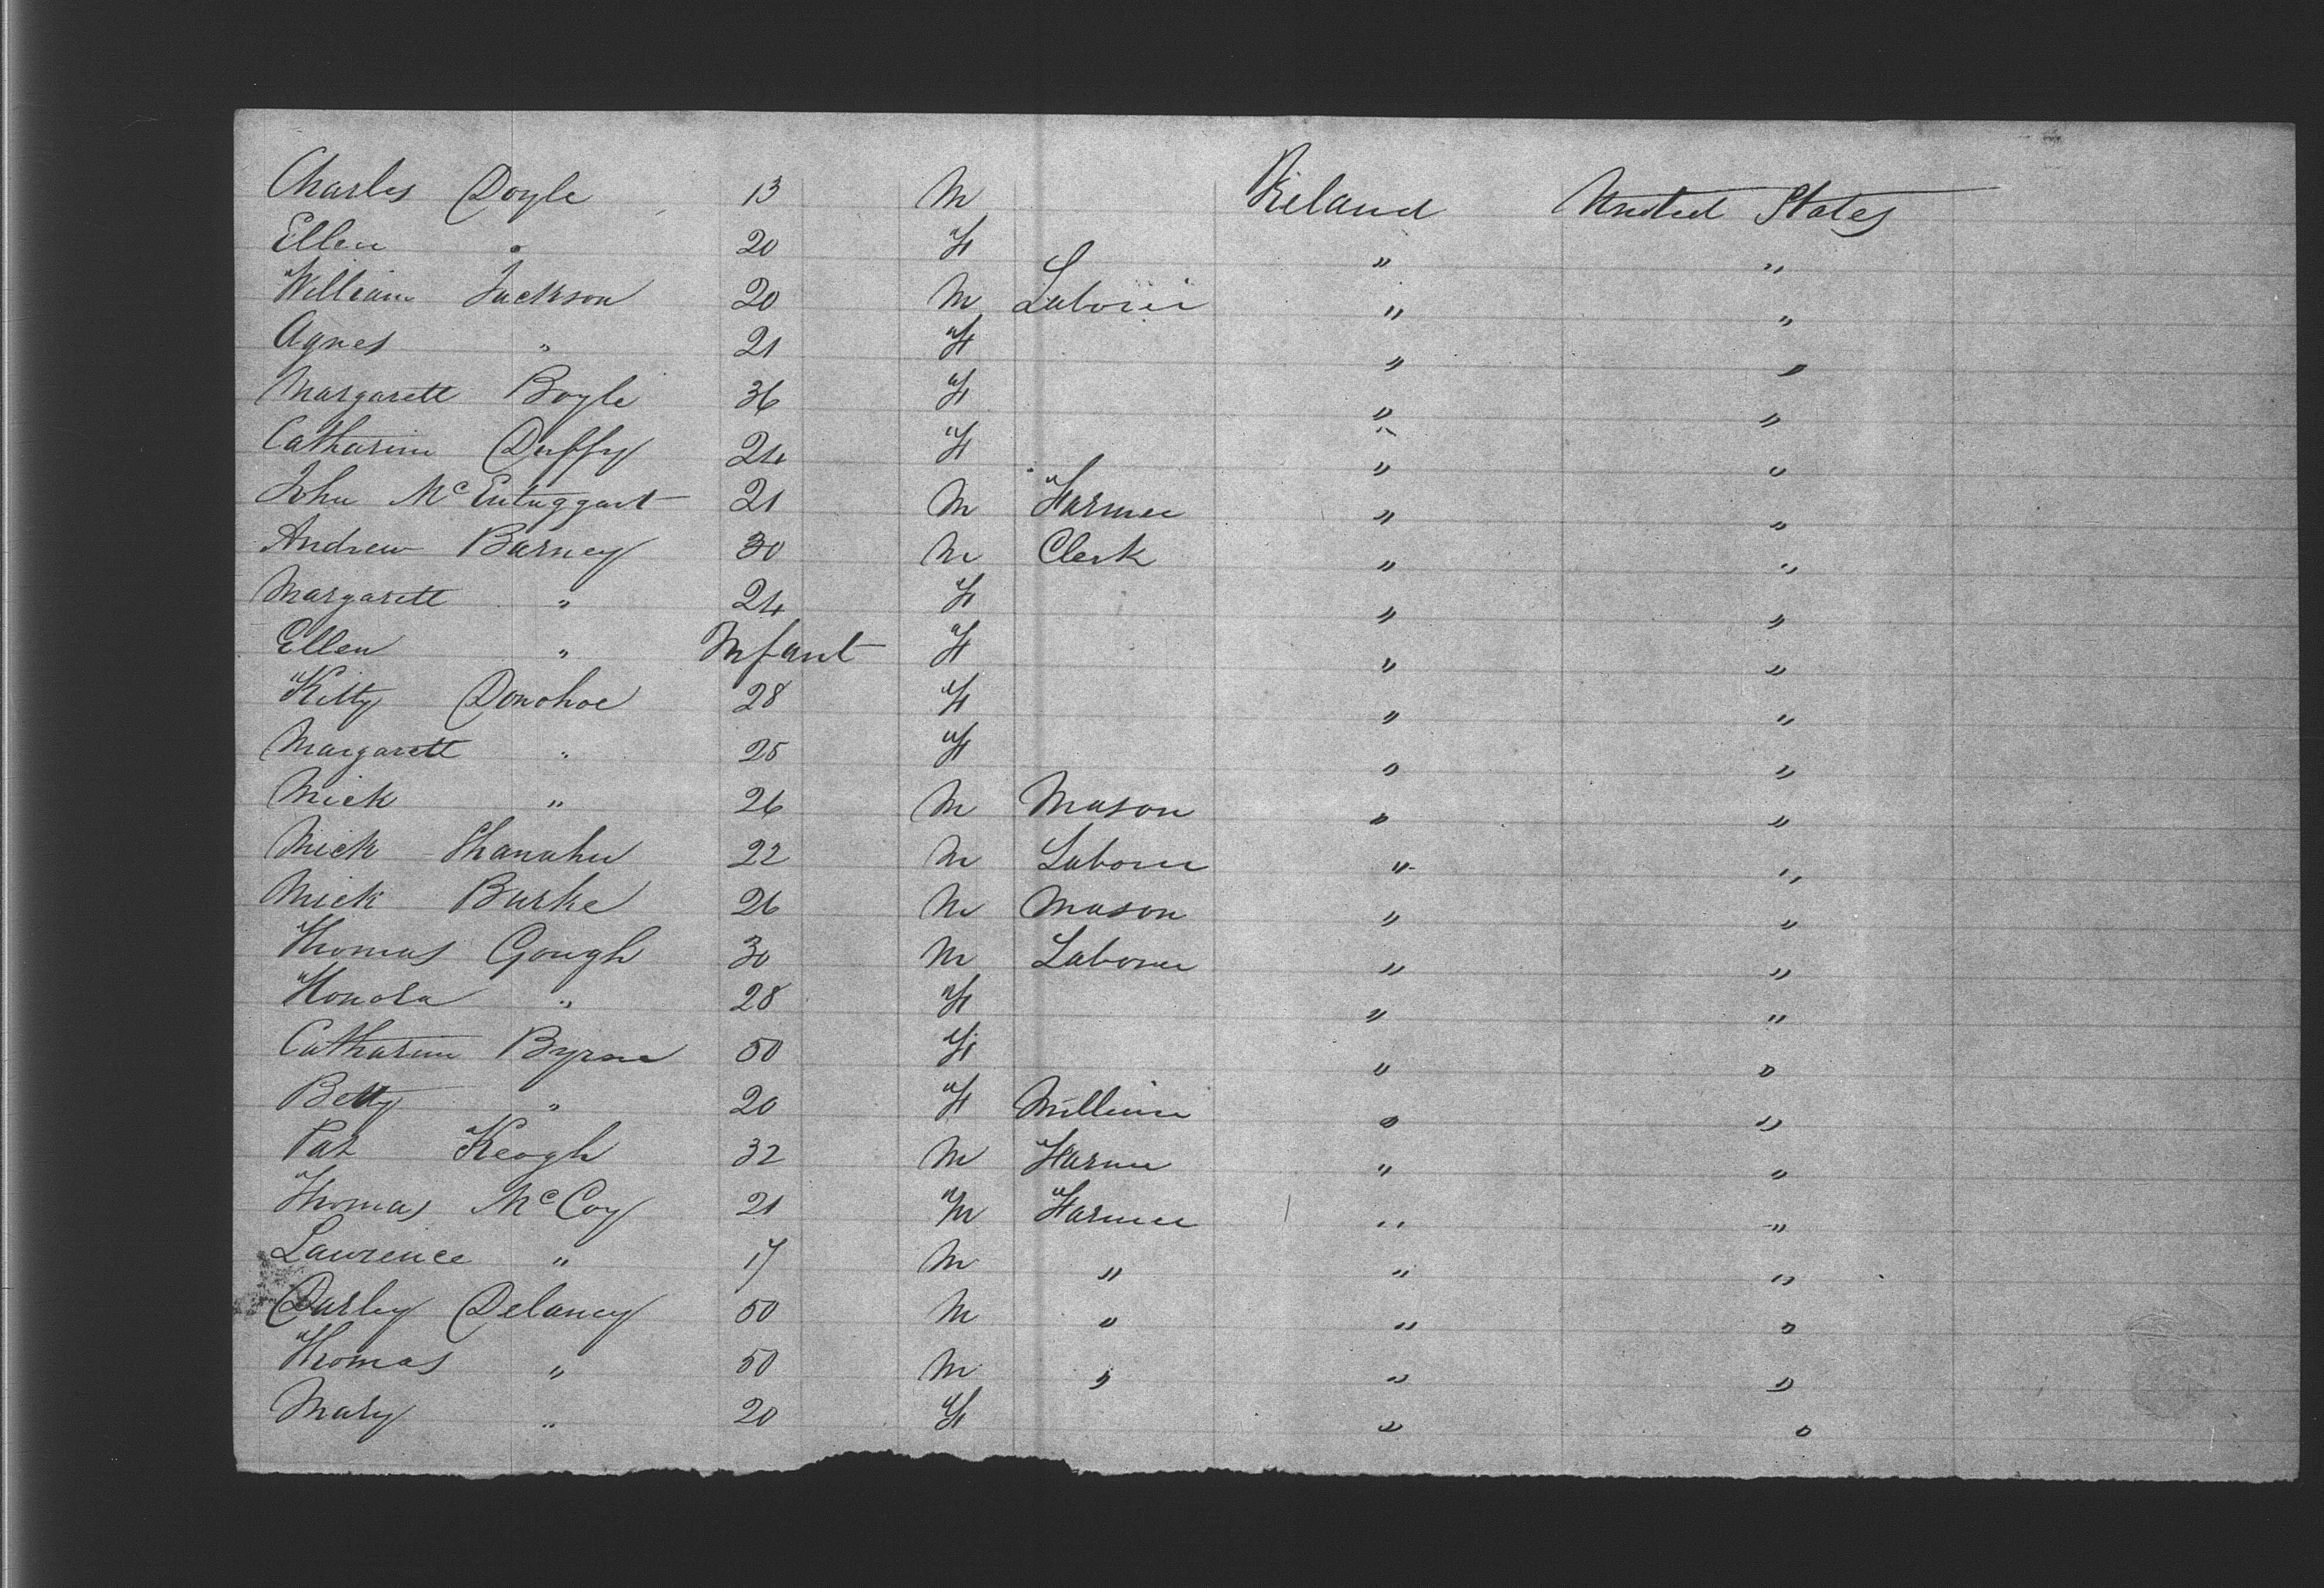 Charles Doyle 13 M Ireland United States
Ellen " 20 F " "
William Jackson 20 M Laborer " "
Agnes " 21 F " "
Margarett Boyle 36 F " "
Catharine Duffy 24 F " "
John McEntaggart 21 M Farmer " "
Andrew Barney 30 M Clerk " "
Margarett " 24 F " "
Ellen " Infant F " "
Kitty Donohoe 28 F " "
Margarett " 25 F " "
Mick " 26 M Mason " "
Mick Shanahen 22 M Laborer " "
Mick Burke 26 M Mason " "
Thomas Gough 30 M Laborer " "
Honora " 28 F " "
Catharine Byrne 50 F " "
Betty " 20 F Milliner " "
Pat Keogh 32 M Farmer " "
Thomas McCoy 21 M Farmer " "
Lawrence " 17 M " " "
Darley Delaney 50 M " " "
Thomas " 50 M " " "
Mary " 20 F " "